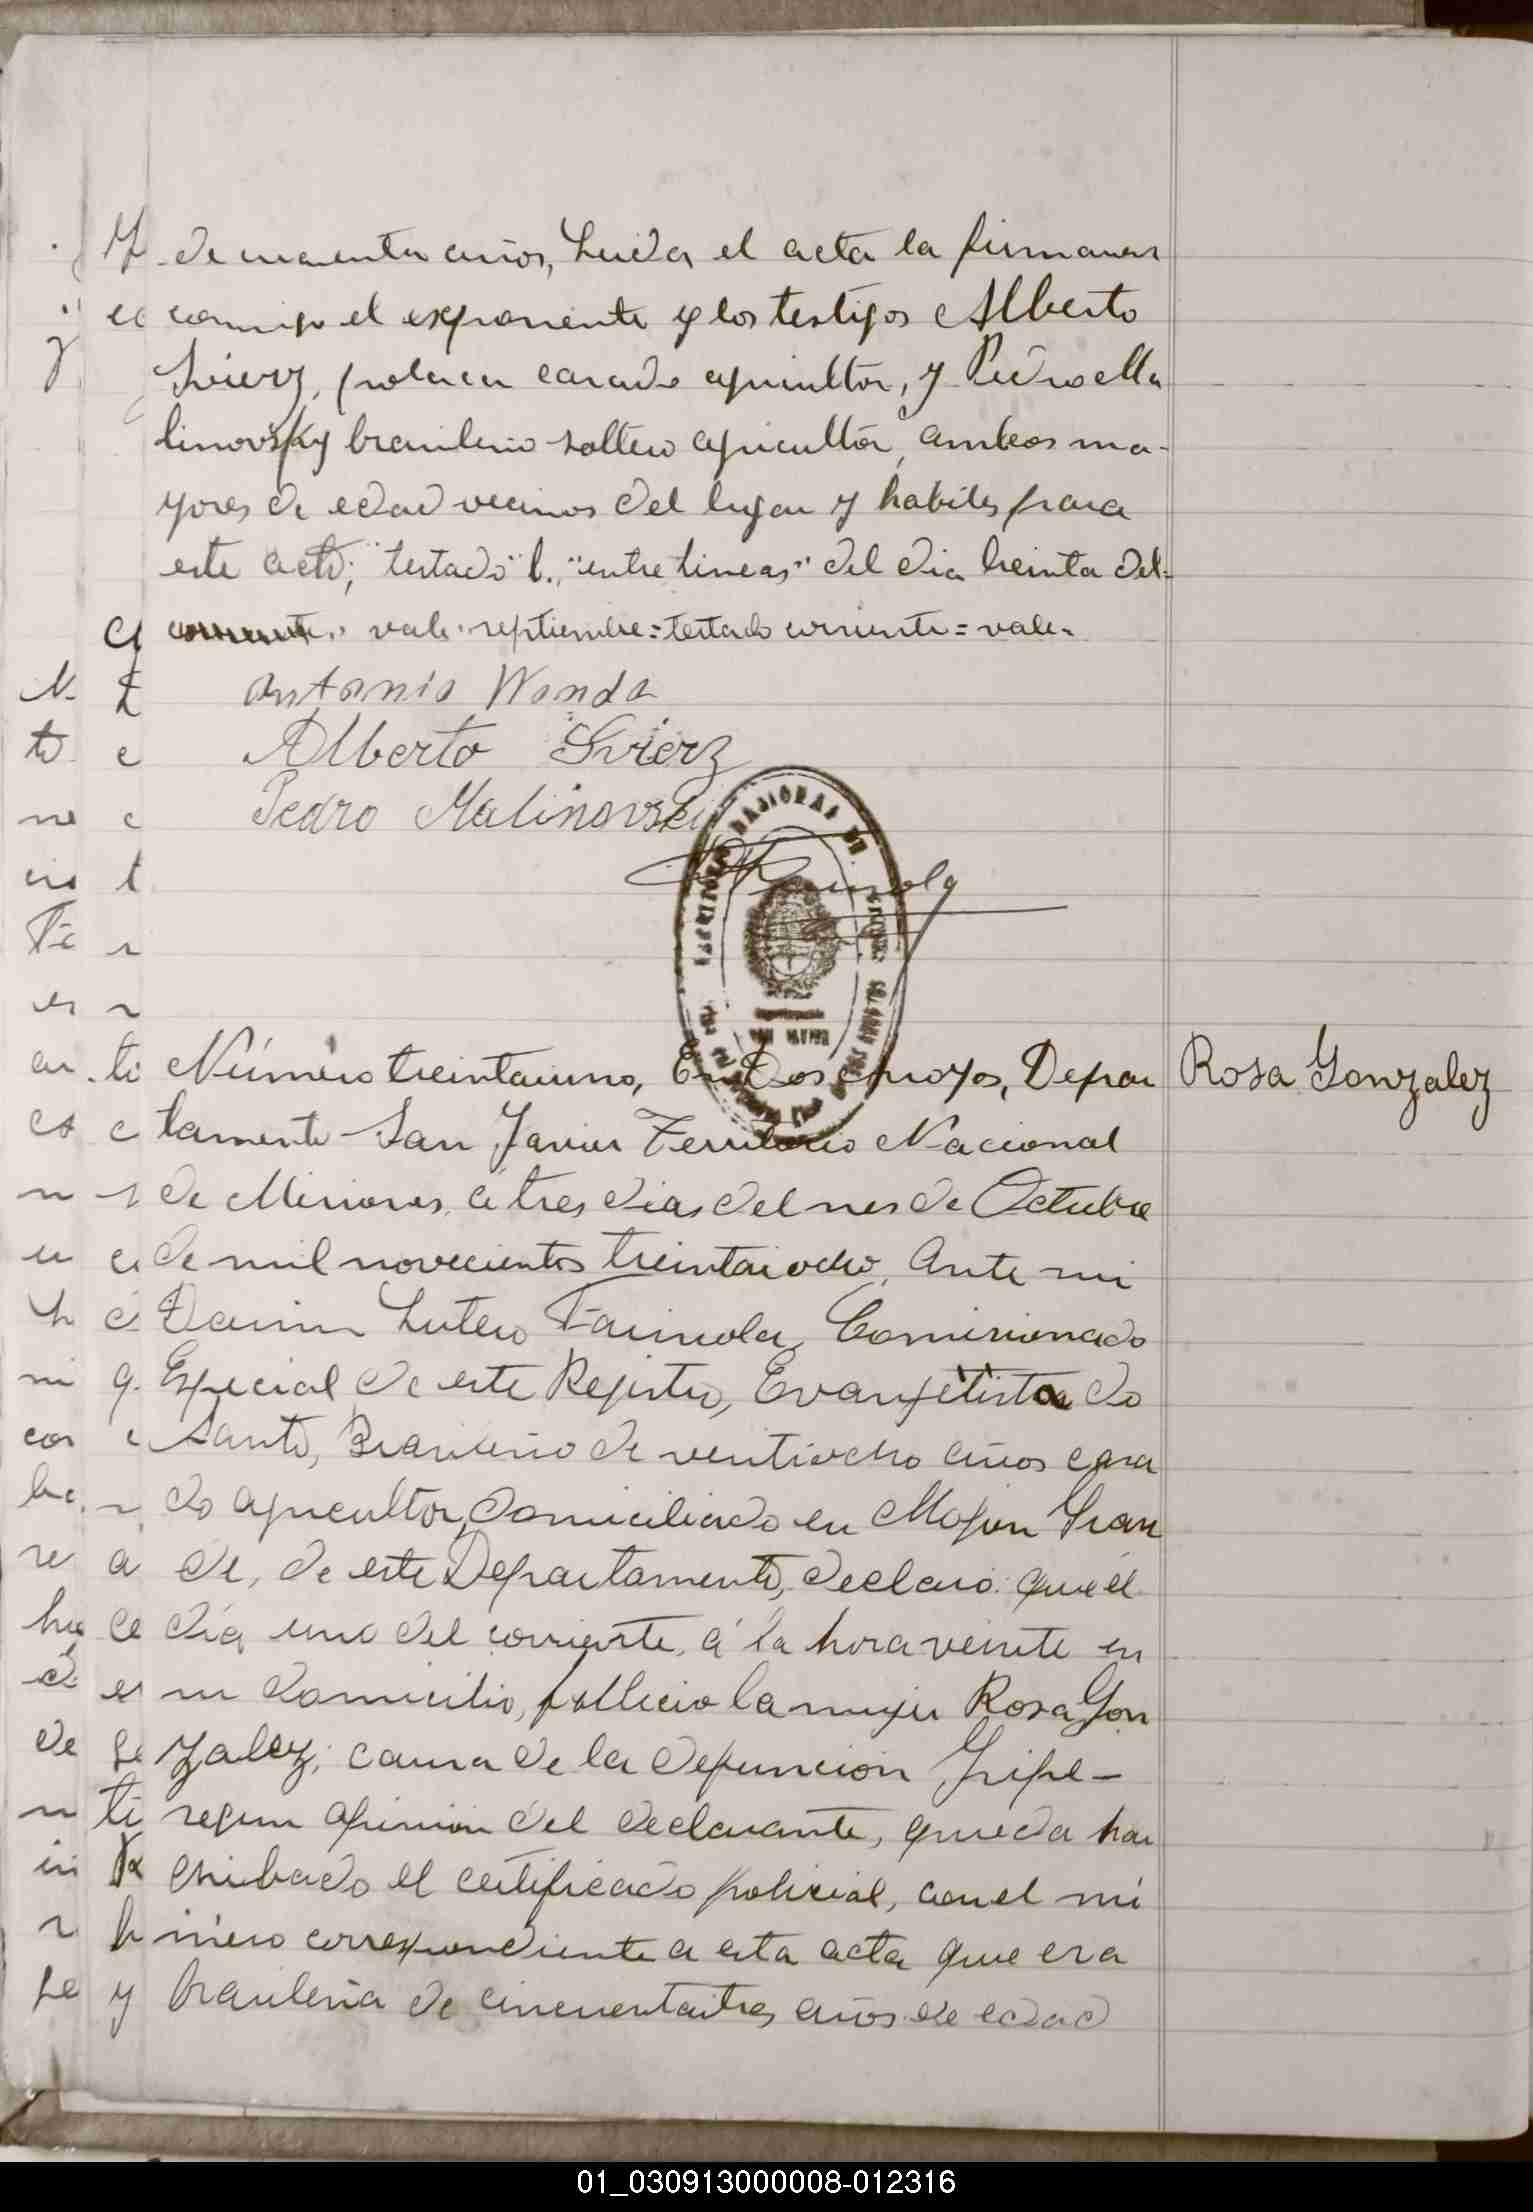 de cincuenta años, Leida el acta la firmaron
conmigo el exponente y los testigos Alberto
Swierz, polaco casado agricultor, y Pedro Ma
linovsky brasileño soltero agricultor, ambos ma-
yores de edad vecinos del lugar y habiles para
este acto; "testado" l., "entre lineas" del dia treinta del-
corriente: vale. septiembre = testado corriente = vale.
Antonio Wonda
Alberto Swierz
Pedro Malinovski
Número treintaiuno, En Dos Arroyos, Depar
Rosa Gonzalez
tamento San Javier Territorio Nacional
de Misiones, á tres dias del mes de Octubre
de mil novecientos treintaiocho, Ante mi
Lutero Farinola, Comisionado
Especial de este Registro, Evangelista do
Santo, Brasileño de ventiocho años casa
do agricultor, domiciliado en Mojon Gran
de, de este Departamento, declaró: que él
día uno del corriente, á la hora veinte en
su domicilio, fallecio la mujer Rosa Gon
zalez; causa de la defuncion Gripe-
segun opinion del declarante, queda har
chibado el certificado policial, con el nú
mero correspondiente a esta acta que era
brasileña de cincuentaitres años de edad
01_030913000008-012316